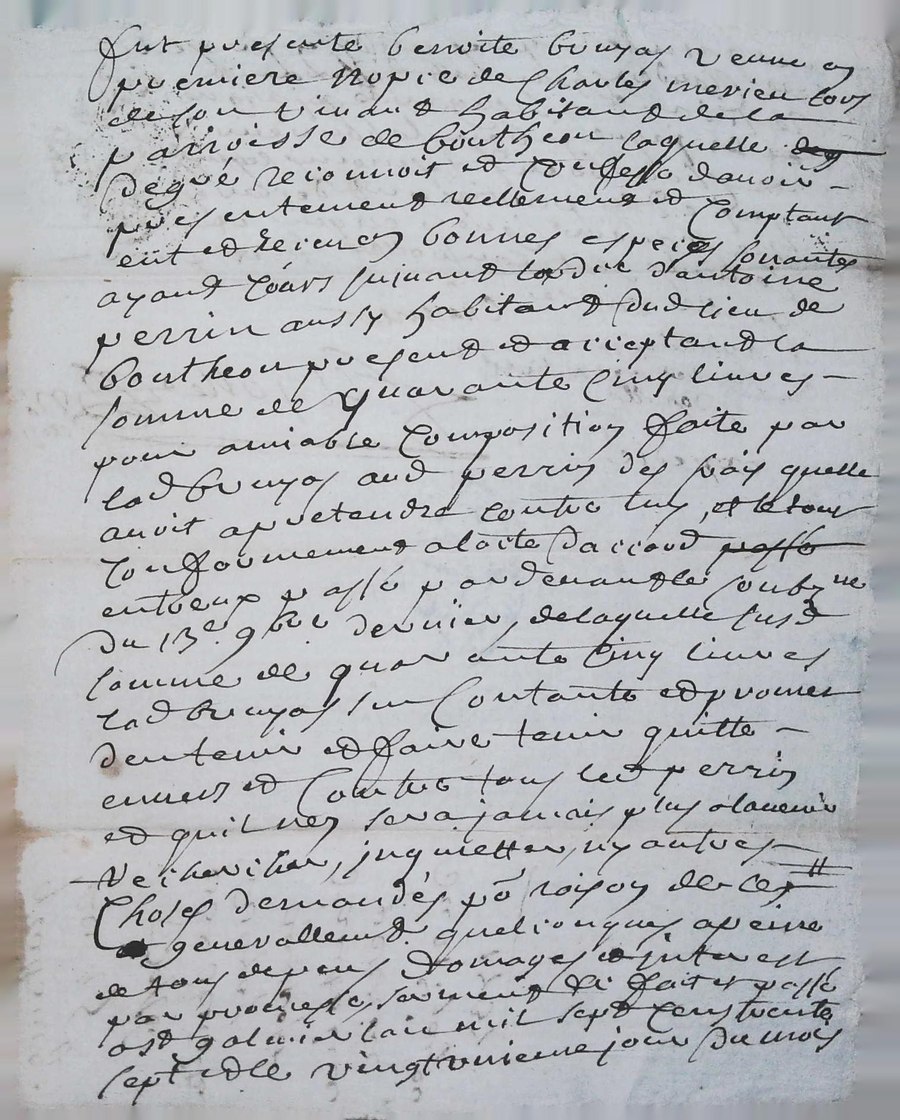 fut presente benoite bruyas veuve en
premiere nopce de Charles merieu lors
de son vivant habitant de la
parroisse de boutheon laquelle
degré reconnoit et confesse davoir
presentement reellement et comptant
eüt et receu en bonnes especes sonantes
ayant cours suivant lordce dantoine
perrin aussy habitant dud lieu de
boutheon present et acceptant la
somme de quarante cinq livres
pour amiable composition faite par
lad bruyas aud perrin des frais quelle
avoit a pretendre contre luy, et le tout
conformement a lacte daccord passé
entreux passé pardevant le soubz ne
du 13e 9bre dernier, de laquelle susd
somme de quarante cinq livres
lad bruyas sen contante et promet
dentenir et faire tenir quitte
envers et contre tous led perrin
et quil nen sera jamais plus a lavenir
recherchér, inquietter, ny autres
choses demandés po raison de ce #
et generallement quelconques a peine
de tous depens domages et interest
par promesse, serment & fait et passé
a st galmier lan mil sept cens trente
sept et le vingt unieme jour du mois